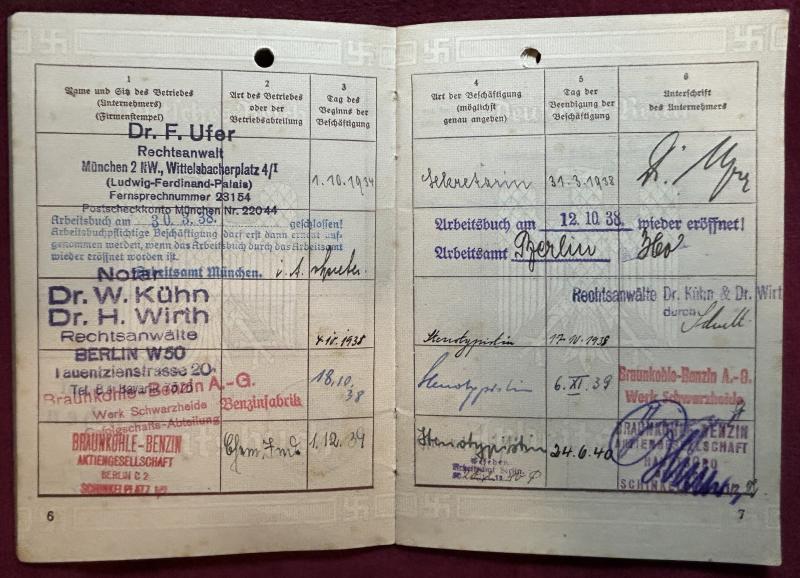 1
Name und Sitz des Betriebes
(Unternehmers)
(Firmenstempel)
2
Art des Betriebes
oder der
Betriebsabteilung
3
Tag des
Beginns der
Beschäftigung
Dr. F. Ufer
Rechtsanwalt
München 2 NW., Wittelsbacherplatz 4/I
(Ludwig-Ferdinand-Palais)
Fernsprechnummer 23154
Postscheckkonto München Nr. 22044
1.10.1934
Arbeitsbuch am 30.3.38. geschlossen!
Arbeitsbuchpflichtige Beschäftigung darf erst dann erneut auf-
genommen werden, wenn das Arbeitsbuch durch das Arbeitsamt
wieder eröffnet worden ist.
Arbeitsamt München.
i. A.
Notar
Dr. W. Kühn
Dr. H. Wirth
Rechtsanwälte
BERLIN W50
Tauentzienstrasse 20
1938
Braunkohle-Benzin A.-G.
Werk Schwarzheide
Gefolgschafts-Abteilung
Benzinfabrik
18.10.
38
BRAUNKOHLE-BENZIN
AKTIENGESELLSCHAFT
BERLIN C 2
SCHINKELPLATZ 1/2
1.12.39
6
4
Art der Beschäftigung
(möglichst
genau angeben)
5
Tag der
Beendigung der
Beschäftigung
6
Unterschrift
des Unternehmers
Sekretärin
31.3.1938
Dr. Ufer
Arbeitsbuch am 12.10.38. wieder eröffnet!
Arbeitsamt Berlin
Rechtsanwälte Dr. Kühn & Dr. Wirt
durch
Stenotypistin
17.10.1938
Stenotypistin
6.XI.39
Braunkohle-Benzin A.-G.
Werk Schwarzheide
Stenotypistin
24.6.40
Gesehen
Arbeitsamt Berlin
BRAUNKOHLE-BENZIN
AKTIENGESELLSCHAFT
7